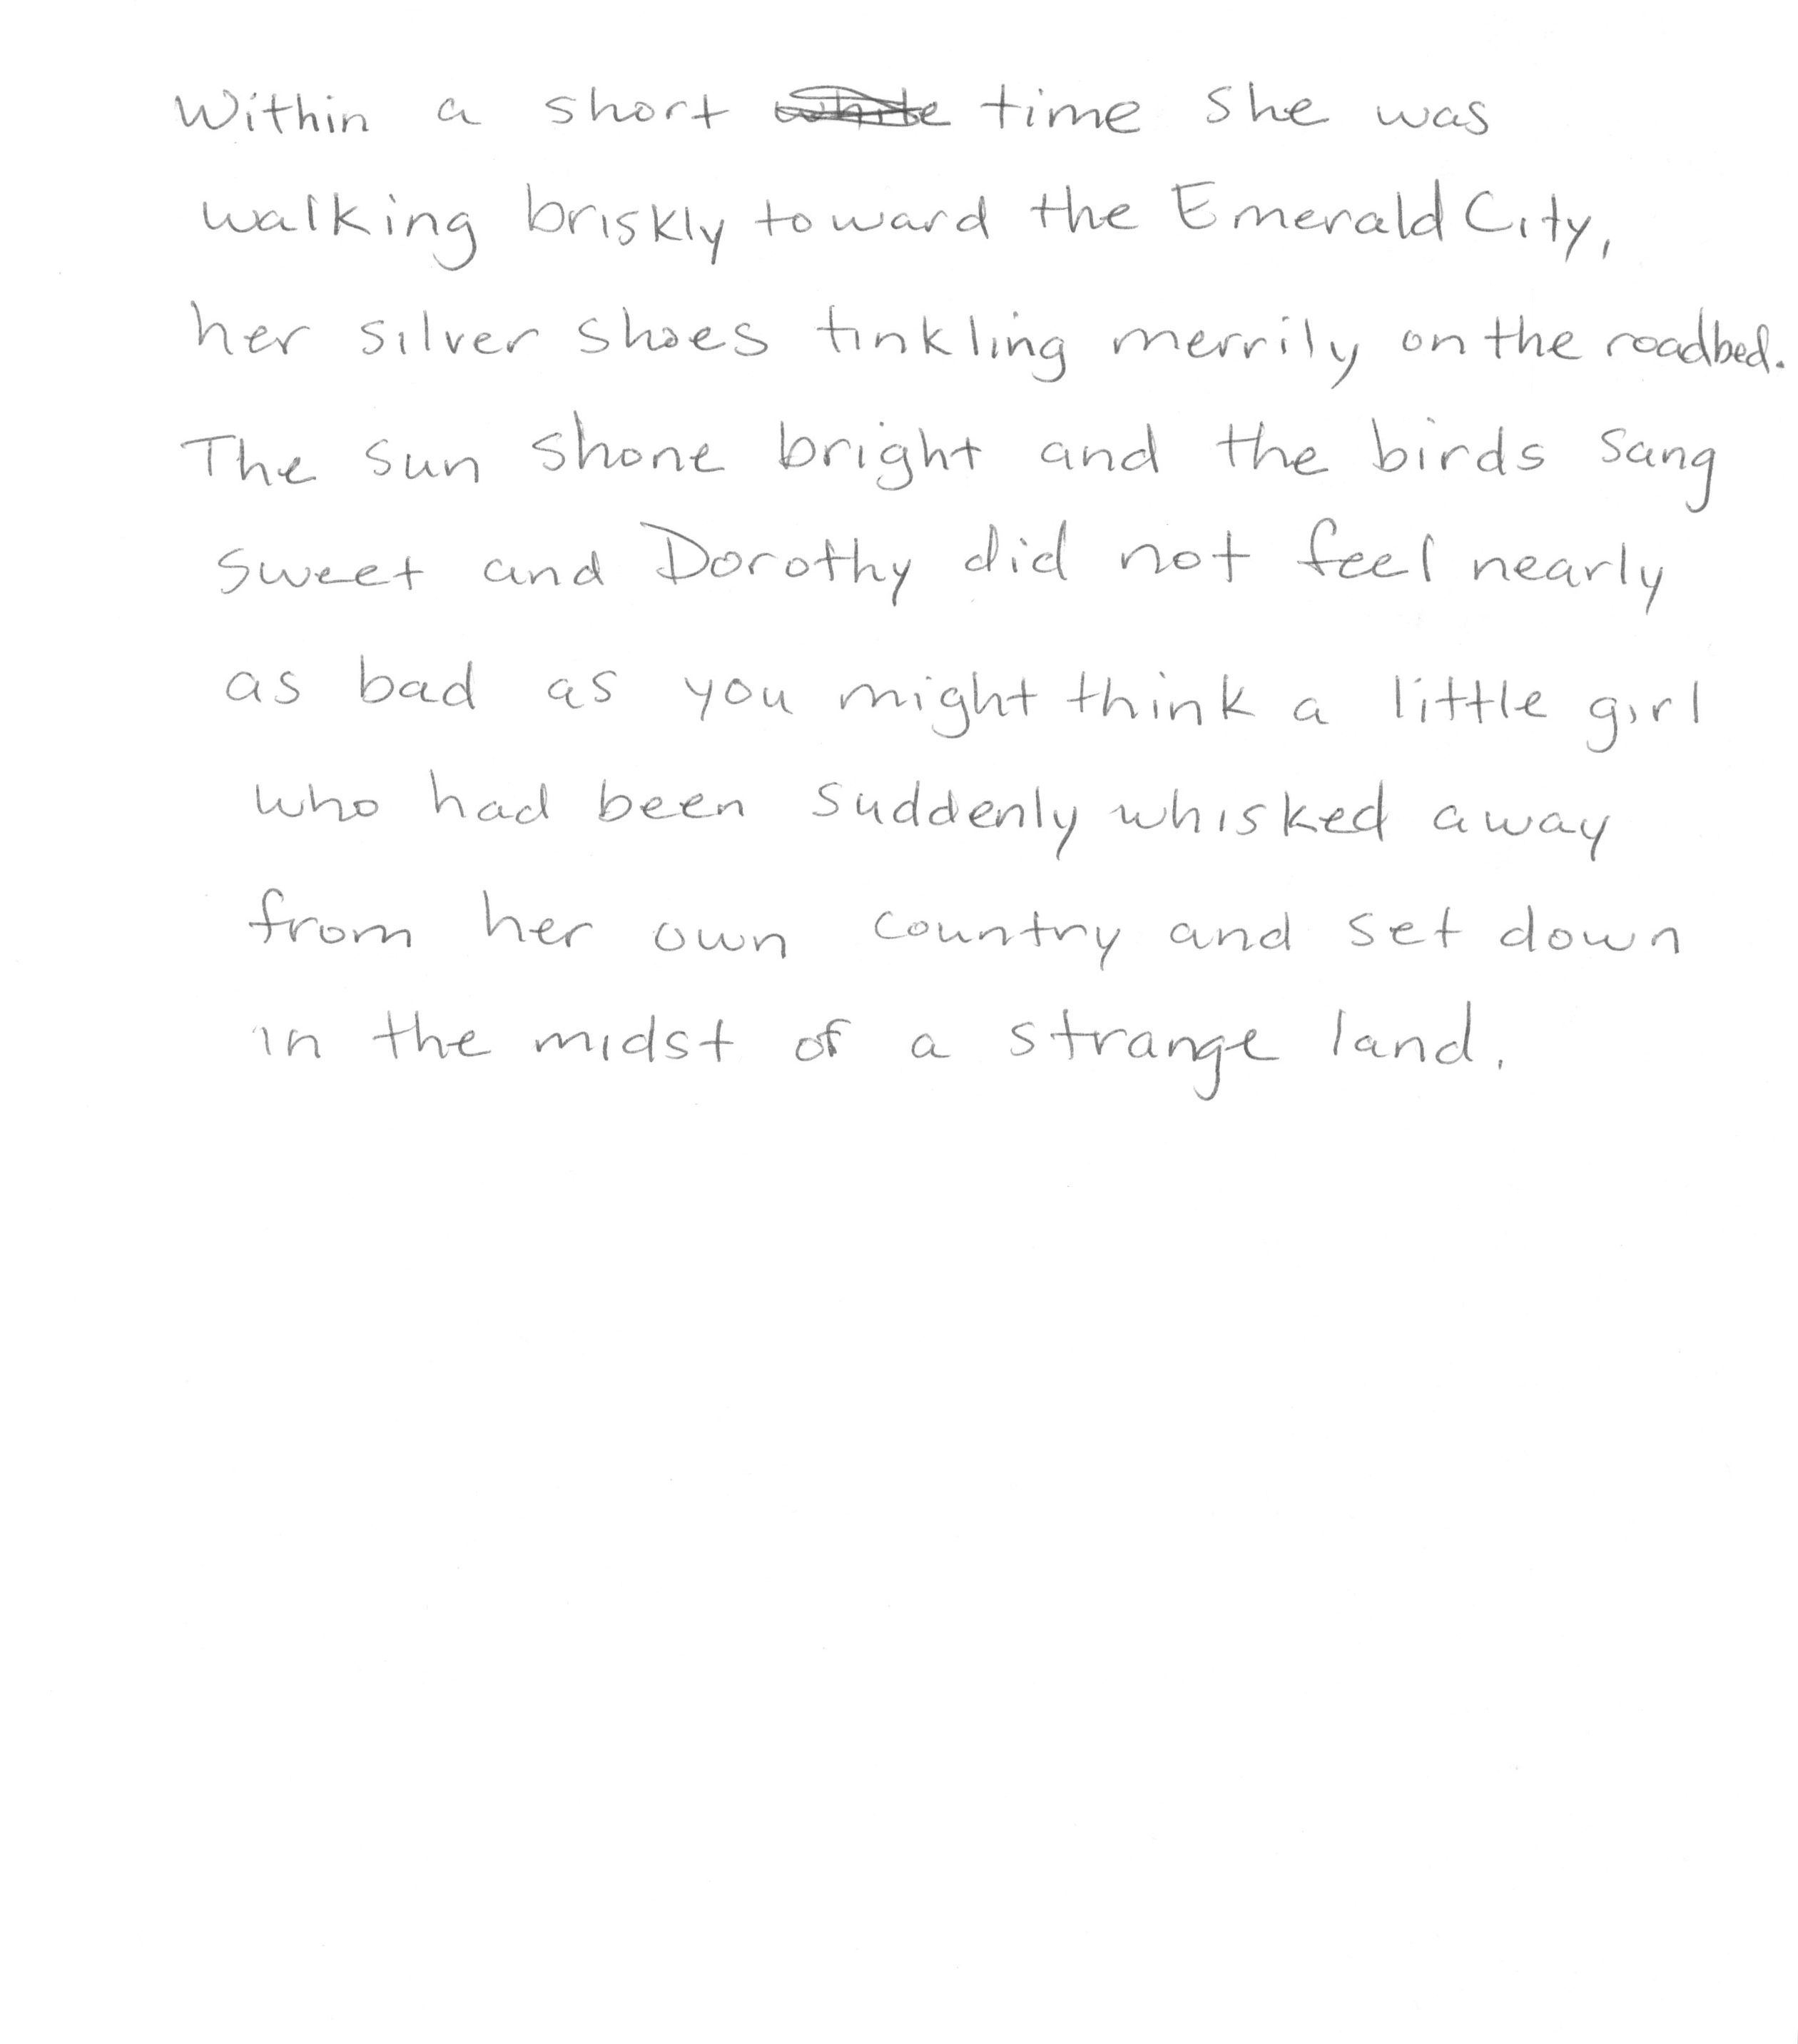 Within a short time she was
walking briskly toward the Emerald City,
her silver shoes tinkling merrily on the roadbed.
The sun shone bright and the birds sang
sweet and Dorothy did not feel nearly
as bad as you might think a little girl
who had been suddenly whisked away
from her own country and set down
in the midst of a strange land.